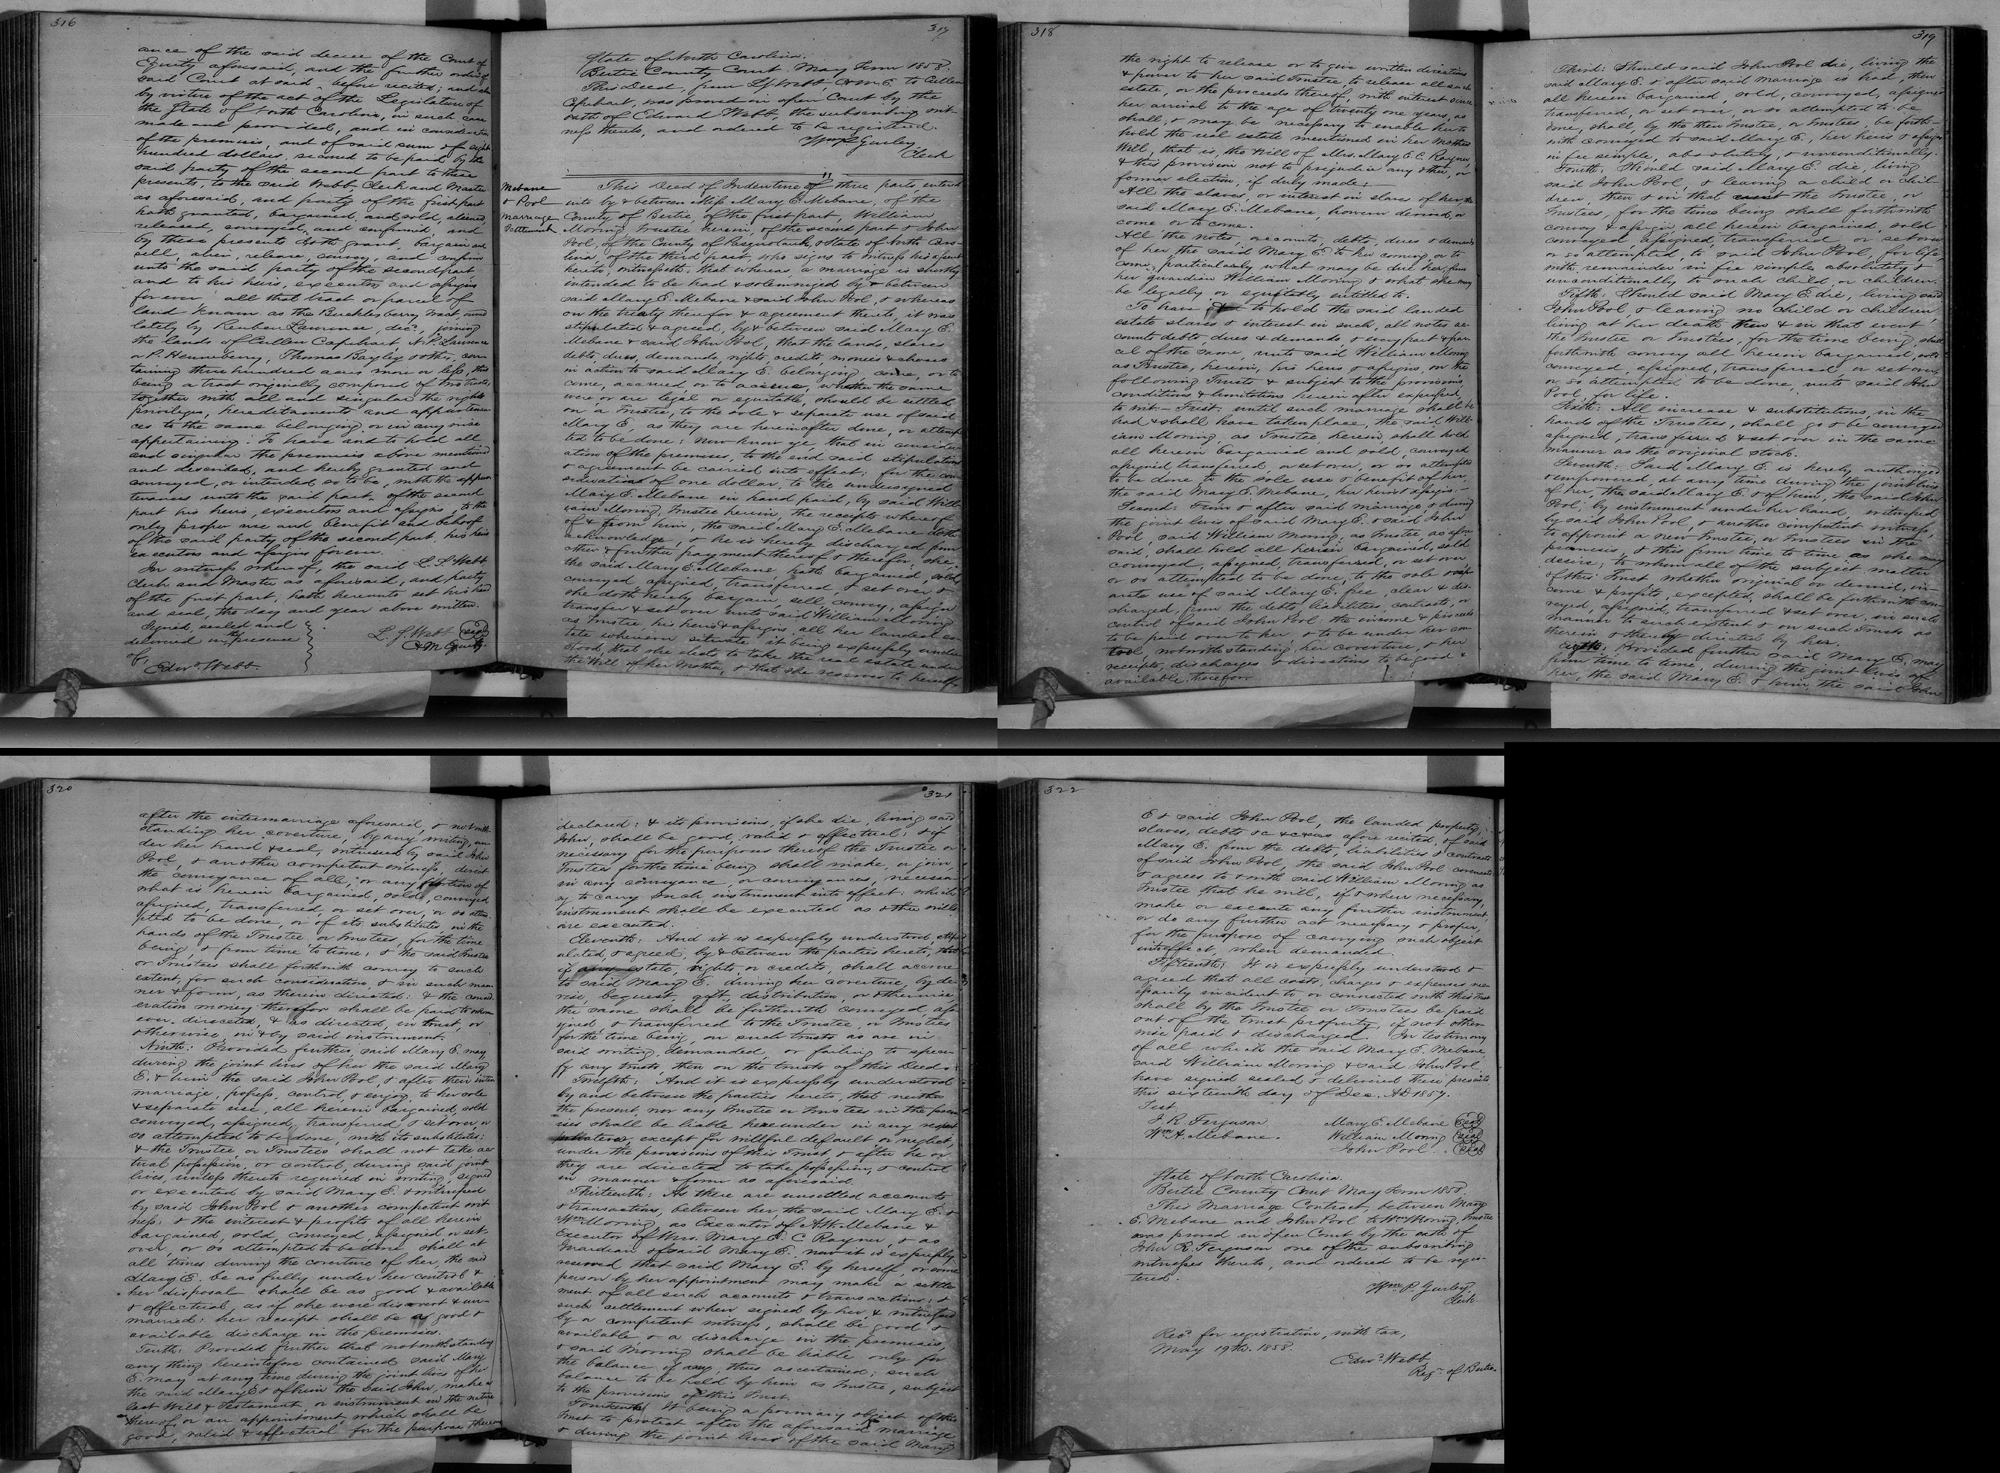 316
ance of the said decree of the Court of
Equity aforesaid, and the further order of
said Court at said before recited; and
by virtue of the act of the Legislature of
the State of North Carolina, in such case
made and provided, and in consideration
of the premises, and of said sum of eight
hundred dollars secured to be paid by the
said party of the second part to these
presents, to the said Webb, Clerk and Master
as aforesaid, and party of the first part
hath granted, bargained, and sold, aliened
released, conveyed, and confirmed, and
by these presents doth grant, bargain and
sell, alien, release, convey, and confirm
unto the said party of the second part
and to his heirs, executors and assigns
forever, all that tract or parcel of
land known as the Bucklesberry tract, owned
lately by Reuben Lawrence, decd, joining
the lands of Cullen Capehart, A. P. Lawrence
or P. Henneberry, Thomas Bayley & others, con-
taining three hundred acres more or less, this
being a tract originally composed of two tracts
together with all and singular the rights
privileges, hereditaments and appurtenan-
ces to the same belonging, or in any wise
appertaining: To have and to hold all
and singular the premises above mentioned
and described, and hereby granted and
conveyed, or intended so to be, with the appur-
tenances unto the said part. of the second
part his heirs, executors and assigns, to the
only proper use and benefit and behoof
of the said party of the second part, his heirs
executors and assigns forever.
In witness whereof, the said L. S. Webb
Clerk and Master as aforesaid, and party
of the first part, hath hereunto set his hand
and seal, the day and year above written.
Signed, sealed and
delivered in the presence
of,
L. S. Webb seal
C & M Equity
Edwd. Webb
317
State of North Carolina.
Bertie County Court May Term 1858.
This Deed, from L. S. Webb, C & M. E. to Cullen
Capehart, was proved in open Court by the
oath of Edward Webb, the subscribing wit-
ness thereto, and ordered to be registered.
Wm P. Gurley
Clerk
Mebane
& Pool
Marriage
Settlement
This Deed of Indenture of three parts, entered
into by & between Miss Mary E. Mebane, of the
County of Bertie, of the first part, William
Moring, Trustee herein, of the second part & John
Pool, of the County of Pasquotank, & State of North Caro-
lina, of the third part, who signs to witness his assent
hereto, witnesseth; that whereas a marriage is shortly
intended to be had & solemnized by & between
said Mary E. Mebane & said John Pool, & whereas
on the treaty therefor & agreement thereto, it was
stipulated & agreed, by & between said Mary E.
Mebane & said John Pool, that the lands, slaves
debts, dues, demands, rights, credits, monies & choses
in action to said Mary E. belonging, come, or to
come, accrued or to accrue, whether the same
were, or are legal or equitable, should be settled
on a Trustee, to the sole & separate use of said
Mary E, as they are hereinafter done, or attemp-
ted to be done: Now know ye, that in consider-
ation of the premises, to the end said stipulation
& agreement be carried into effect; for the con-
sideration of one dollar, to the undersigned
Mary E. Mebane in hand paid, by said Will-
iam Moring, Trustee herein, the receipts whereof
of & from him, the said Mary E. Mebane doth
acknowledge, & he is hereby discharged from
other & further payment thereof & therefor; she,
the said Mary E. Mebane hath bargained, sold,
conveyed assigned, transferred, & set over &
she doth hereby bargain sell, convey, assign
transfer & set over unto said William Moring
as Trustee, his heirs & assigns, all her landed es-
tate wheresoever situate, it being expressly under-
stood, that she elects to take the real estate under
the Will of her Mother, & that she reserves to herself
318
the right to release or to give written directions
& power to her said Trustee, to release all such
estate, or the proceeds thereof, with interest since
her arrival to the age of twenty one years, as
shall, & may be necessary to enable her to
hold the real estate mentioned in her Mothers
Will, that is, the Will of Mrs. Mary E. C. Rayner,
& this provision not to prejudice any other, or
former election, if duly made;
All the slaves, or interest in slaves of her the
said Mary E. Mebane, however derived, or
come or to come.
All the notes, accounts, debts, dues & demands
of her, the said Mary E. to her coming, or to
come, particularly what may be due her from
her guardian William Moring & what she may
be legally or equitably entitled to.
To have & to hold the said landed
estate slaves & interest in such, all notes ac-
counts debts, dues & demands, & every part & par-
cel of the same, unto said William Moring
as Trustee, herein, his heirs & assigns, on the
following Trusts & subject to the provisions,
conditions & limitations herein after expressed,
to wit— First: until such marriage shall be
had & shall have taken place, the said Will-
iam Moring, as Trustee, herein, shall hold
all herein bargained and sold, conveyed
assigned, transferred, or set over, or so attempted
to be done, to the sole use & benefit of her,
the said Mary E. Mebane, her heirs & assigns—
Second: From & after said marriage, & during
the joint lives of said Mary E. & said John
Pool, said William Moring, as Trustee, as afore-
said, shall hold all herein bargained, sold
conveyed, assigned, transferred, or set over
or so attempted to be done, to the sole & sep-
arate use of said Mary E. free, clear & dis-
charged, from the debts, liabilities, contracts, or
control of said John Pool, the income & proceeds
to be paid over to her, & to be under her con-
trol, notwithstanding her coverture, & her
receipts, discharges & directions to be good &
available therefor.
319
Third: Should said John Pool die, living the
said Mary E. & after said marriage is had, then
all herein bargained, sold, conveyed, assigned
transferred, or set over, or so attempted to be
done, shall, by the then Trustee, or Trustees, be forth-
with conveyed to said Mary E., her heirs & assigns
in fee simple, absolutely, & unconditionally.
Fourth: Should said Mary E. die, living
said John Pool, & leaving a child or chil-
dren, then & in that event the Trustee, or
Trustees, for the time being shall forthwith
convey & assign all herein bargained, sold
conveyed, assigned, transferred, or set over
or so attempted, to said John Pool, for life,
with remainder in fee simple absolutely &
unconditionally to such child or children.
Fifth: Should said Mary E. die, living said
John Pool, & leaving no child or children,
living at her death, then & in that event
the Trustee or Trustees, for the time being, shall
forthwith convey all herein bargained, sold
conveyed, assigned, transferred, or set over,
or so attempted to be done, unto said John
Pool, for life.
Sixth: All increase & substitutions, in the
hands of the Trustees, shall go & be conveyed
assigned, transferred & set over in the same
manner as the original stock.
Seventh: Said Mary E. is hereby authorized
& empowered, at any time during the joint lives
of her, the said Mary E. & of him, the said John
Pool, by instrument under her hand, witnessed
by said John Pool, & another competent witness,
to appoint a new Trustee, or Trustees in the
premises, & thus from time to time as she may
desire; to whom all of the subject matter
of this Trust whether original or derived, in-
come & profits, excepted, shall be forthwith con-
veyed, assigned, transferred & set over, in such
manner to such extent & on such Trusts as
therein & thereby directed by her.
Eighth: Provided further said Mary E. may
from time to time, during the joint lives of
her, the said Mary E. & him the said John
320
after the intermarriage aforesaid, & notwith-
standing her coverture, by any writing, un-
der her hand & seal, witnessed by said John
Pool, & another competent witness, direct
the conveyance of all, or any portion of
what is herein bargained, sold, conveyed
assigned, transferred, or set over, or so attem-
pted to be done, or of its substitutes, in the
hands of the Trustee or Trustees, for the time
being, & from time to time; & the said Trustee
or Trustees shall forthwith convey to such
extent, for such consideration, & in such man-
ner & form, as therein directed: & the consid-
eration money therefor shall be paid to whom-
ever directed, & as directed, in trust, or
otherwise, in & by said instrument.
Ninth: Provided further, said Mary E. may
during the joint lives of her the said Mary
E. & him the said John Pool, & after their inter-
marriage, possess, control, & enjoy, to her sole
& separate use, all herein bargained, sold
conveyed, assigned, transferred & set over, or
so attempted to be done, with its substitutes:
& the Trustee, or Trustees shall not take ac-
tual possession, or control, during said joint
lives, unless thereto required in writing, signed
or executed by said Mary E. & witnessed
by said John Pool & another competent wit-
ness: & the interest & profits of all herein
bargained, sold, conveyed, assigned or set
over, or so attempted to be done shall at
all times during the coverture of her, the said
Mary E. be as fully under her control &
her disposal shall be as good & available
& effectual, as if she were discovert & un-
married: her receipt shall be a good &
available discharge in the premises.
Tenth: Provided further that notwithstanding
any thing heretofore contained said Mary
E. may at any time during the joint lives of her
the said Mary E. & of him the said John, make a
last Will & Testament, or instrument in the nature
thereof, or an appointment which shall be
good, valid & effectual for the purpose therein
321
declared: & its provisions, if she die, living said
John, shall be good, valid & effectual: & if
necessary for the purposes thereof the Trustee or
Trustees for the time being shall make, or join,
in any conveyance, or conveyances, necessa-
ry to carry such instrument into effect: which
instrument shall be executed as other wills
are executed.
Eleventh: And it is expressly understood, stip-
ulated, & agreed, by & between the parties hereto, that
if any estate, rights, or credits, shall accrue
to said Mary E. during her coverture, by de-
vise, bequest, gift, distribution, or otherwise,
the same shall be forthwith conveyed, ass-
igned & transferred to the Trustee, or Trustees
for the time being, on such trusts as are in
said writing demanded, or failing to speci-
fy any trusts, then on the trusts of this Deed:
Twelfth: And it is expressly understood
by and between the parties hereto, that neither
the present, nor any Trustee or Trustees in the prem-
ises shall be liable hereunder in any respect
except for willful default or neglect,
under the provisions of this Trust & after he or
they are directed to take possession, & control
in manner & form as aforesaid.
Thirteenth: As there are unsettled accounts
& transactions, between her, the said Mary E. &
Wm Moring, as Executor of A. W. Mebane &
Executor of Mrs. Mary E. C. Rayner, & as
Guardian of said Mary E. now it is expressly
reserved that said Mary E. by herself, or some
person by her appointment may make a settle-
ment of all such accounts & transactions; &
such settlement when signed by her & witnessed
by a competent witness, shall be good &
available, & a discharge in the premises,
& said Moring shall be liable only for
the balance if any, thus ascertained; such
balance to be held by him as Trustee, subject
to the provisions of this Trust.
Fourteenth: It being a primary object of this
Trust to protect after the aforesaid marriage
& during the joint lives of the said Mary
322
E. & said John Pool, the landed property,
slaves, debts &c &c as afore recited, of said
Mary E. from the debts, liabilities & contracts
of said John Pool, the said John Pool covenants
& agrees to & with said William Moring as
Trustee that he will, if & when necessary,
make or execute any further instrument
or do any further act necessary & proper,
for the purpose of carrying such object
into effect, when demanded.
Fifteenth: It is expressly understood &
agreed that all costs, charges & expenses nec-
essarily incident to or connected with this Trust
shall by the Trustee or Trustees be paid
out of the trust property, if not other-
wise paid & discharged. In testimony
of all which the said Mary E. Mebane,
said William Moring & said John Pool,
have signed sealed & delivered these presents
this sixteenth day of Dec. AD 1857.
Test.
J. R. Ferguson
Wm A. Mebane.
Mary E. Mebane seal
William Moring seal
John Pool. seal
State of North Carolina.
Bertie County Court May Term 1858.
This Marriage Contract, between Mary
E. Mebane and John Pool to Wm Moring, Trustee
was proved in open Court by the oath of
John R. Ferguson one of the subscribing
witnesses thereto, and ordered to be regis-
tered.
Wm. P. Gurley,
Clerk
Recd for registration, with tax,
May 19th. 1858.
Edwd. Webb
Regr of Bertie.